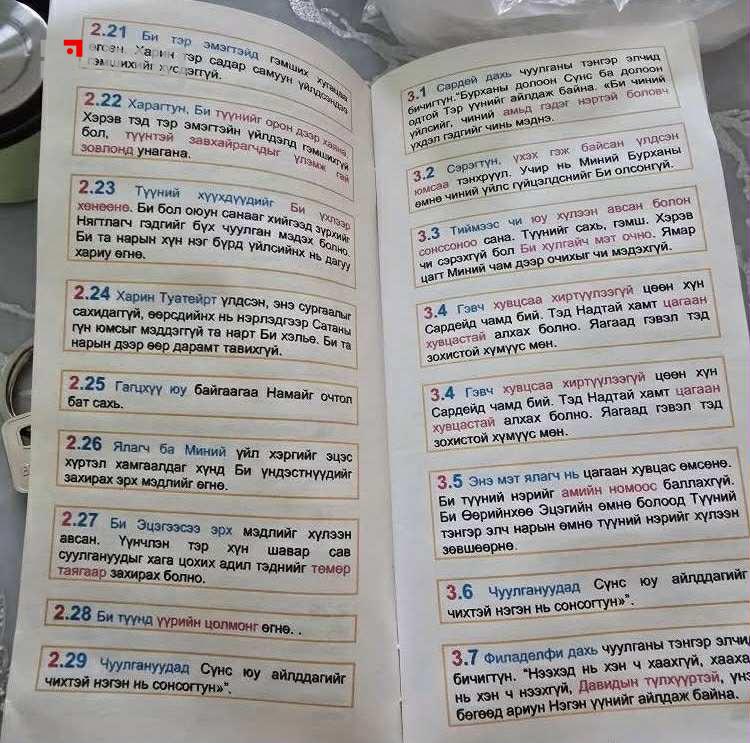 2.21 Би тэр эмэгтэйд гэмших хугацаа
өгсөн. Харин тэр садар самуун үйлдсэндээ
гэмшихийг хүсдэггүй.
2.22 Харагтун, Би түүнийг орон дээр хаяна.
Хэрэв тэд тэр эмэгтэйн үйлдэлд гэмшихгүй
бол, түүнтэй завхайрагчдыг үлэмж гай
зовлонд унагана.
2.23 Түүний хүүхдүүдийг Би үхлээр
хөнөөнө. Би бол оюун санааг хийгээд зүрхийг
Нягтлагч гэдгийг бүх чуулган мэдэх болно.
Би та нарын хүн нэг бүрд үйлсийнх нь дагуу
хариу өгнө.
2.24 Харин Туатейрт үлдсэн, энэ сургаалыг
сахидаггүй, өөрсдийнх нь нэрлэдгээр Сатаны
гүн юмсыг мэддэггүй та нарт Би хэлье. Би та
нарын дээр өөр дарамт тавихгүй.
2.25 Гагцхүү юу байгаагаа Намайг очтол
бат сахь.
2.26 Ялагч ба Миний үйл хэргийг эцэс
хүртэл хамгаалдаг хүнд Би үндэстнүүдийг
захирах эрх мэдлийг өгнө.
2.27 Би Эцэгээсээ эрх мэдлийг хүлээн
авсан. Үүнчлэн тэр хүн шавар сав
суулгануудыг хага цохих адил тэднийг төмөр
таягаар захирах болно.
2.28 Би түүнд үүрийн цолмонг өгнө. .
2.29 Чуулгануудад Сүнс юу айлддагийг
чихтэй нэгэн нь сонсогтун»".
3.1 Сардей дахь чуулганы тэнгэр элчид
бичигтүн."Бурханы долоон Сүнс ба долоон
одтой Тэр үүнийг айлдаж байна. «Би чиний
үйлсийг, чиний амьд гэдэг нэртэй боловч
үхдэл гэдгийг чинь мэднэ.
3.2 Сэрэгтүн, үхэх гэж байсан үлдсэн
юмсаа тэнхрүүл. Учир нь Миний Бурханы
өмнө чиний үйлс гүйцэлдснийг Би олсонгүй.
3.3 Тиймээс чи юу хүлээн авсан болон
сонссоноо сана. Түүнийг сахь, гэмш. Хэрэв
чи сэрэхгүй бол Би хулгайч мэт очно. Ямар
цагт Миний чам дээр очихыг чи мэдэхгүй.
3.4 Гэвч хувцсаа хиртүүлээгүй цөөн хүн
Сардейд чамд бий. Тэд Надтай хамт цагаан
хувцастай алхах болно. Яагаад гэвэл тэд
зохистой хүмүүс мөн.
3.4 Гэвч хувцсаа хиртүүлээгүй цөөн хүн
Сардейд чамд бий. Тэд Надтай хамт цагаан
хувцастай алхах болно. Яагаад гэвэл тэд
зохистой хүмүүс мөн.
3.5 Энэ мэт ялагч нь цагаан хувцас өмсөнө.
Би түүний нэрийг амийн номоос баллахгүй.
Би Өөрийнхөө Эцэгийн өмнө болоод Түүний
тэнгэр элч нарын өмнө түүний нэрийг хүлээн
зөвшөөрнө.
3.6 Чуулгануудад Сүнс юу айлддагийг
чихтэй нэгэн нь сонсогтун»".
3.7 Филаделфи дахь чуулганы тэнгэр элчид
бичигтүн. "Нээхэд нь хэн ч хаахгүй,
нь хэн ч нээхгүй, Давидын түлхүүртэй,
бөгөөд ариун Нэгэн үүнийг айлдаж байна.